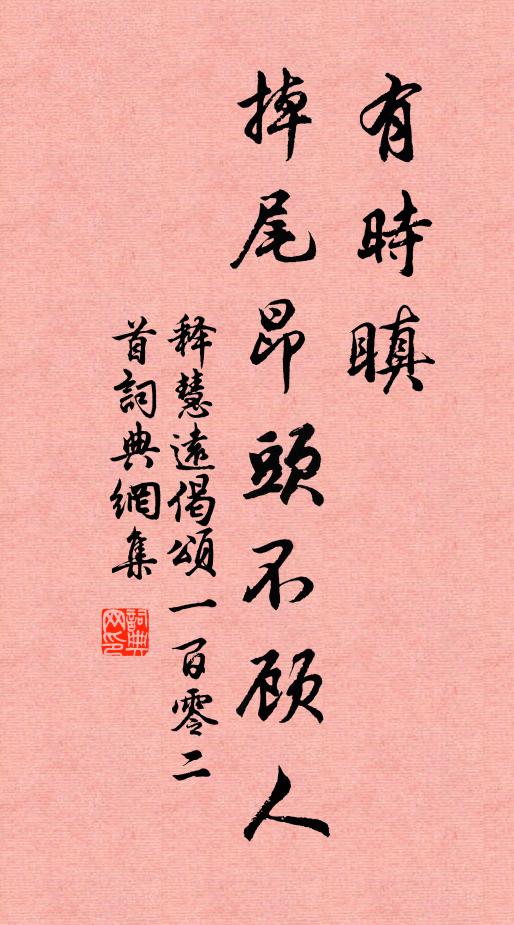 有時瞋
掉尾昂頭不顾人
释慧遠偈頌一百零二
首詞典網集
詞典網印